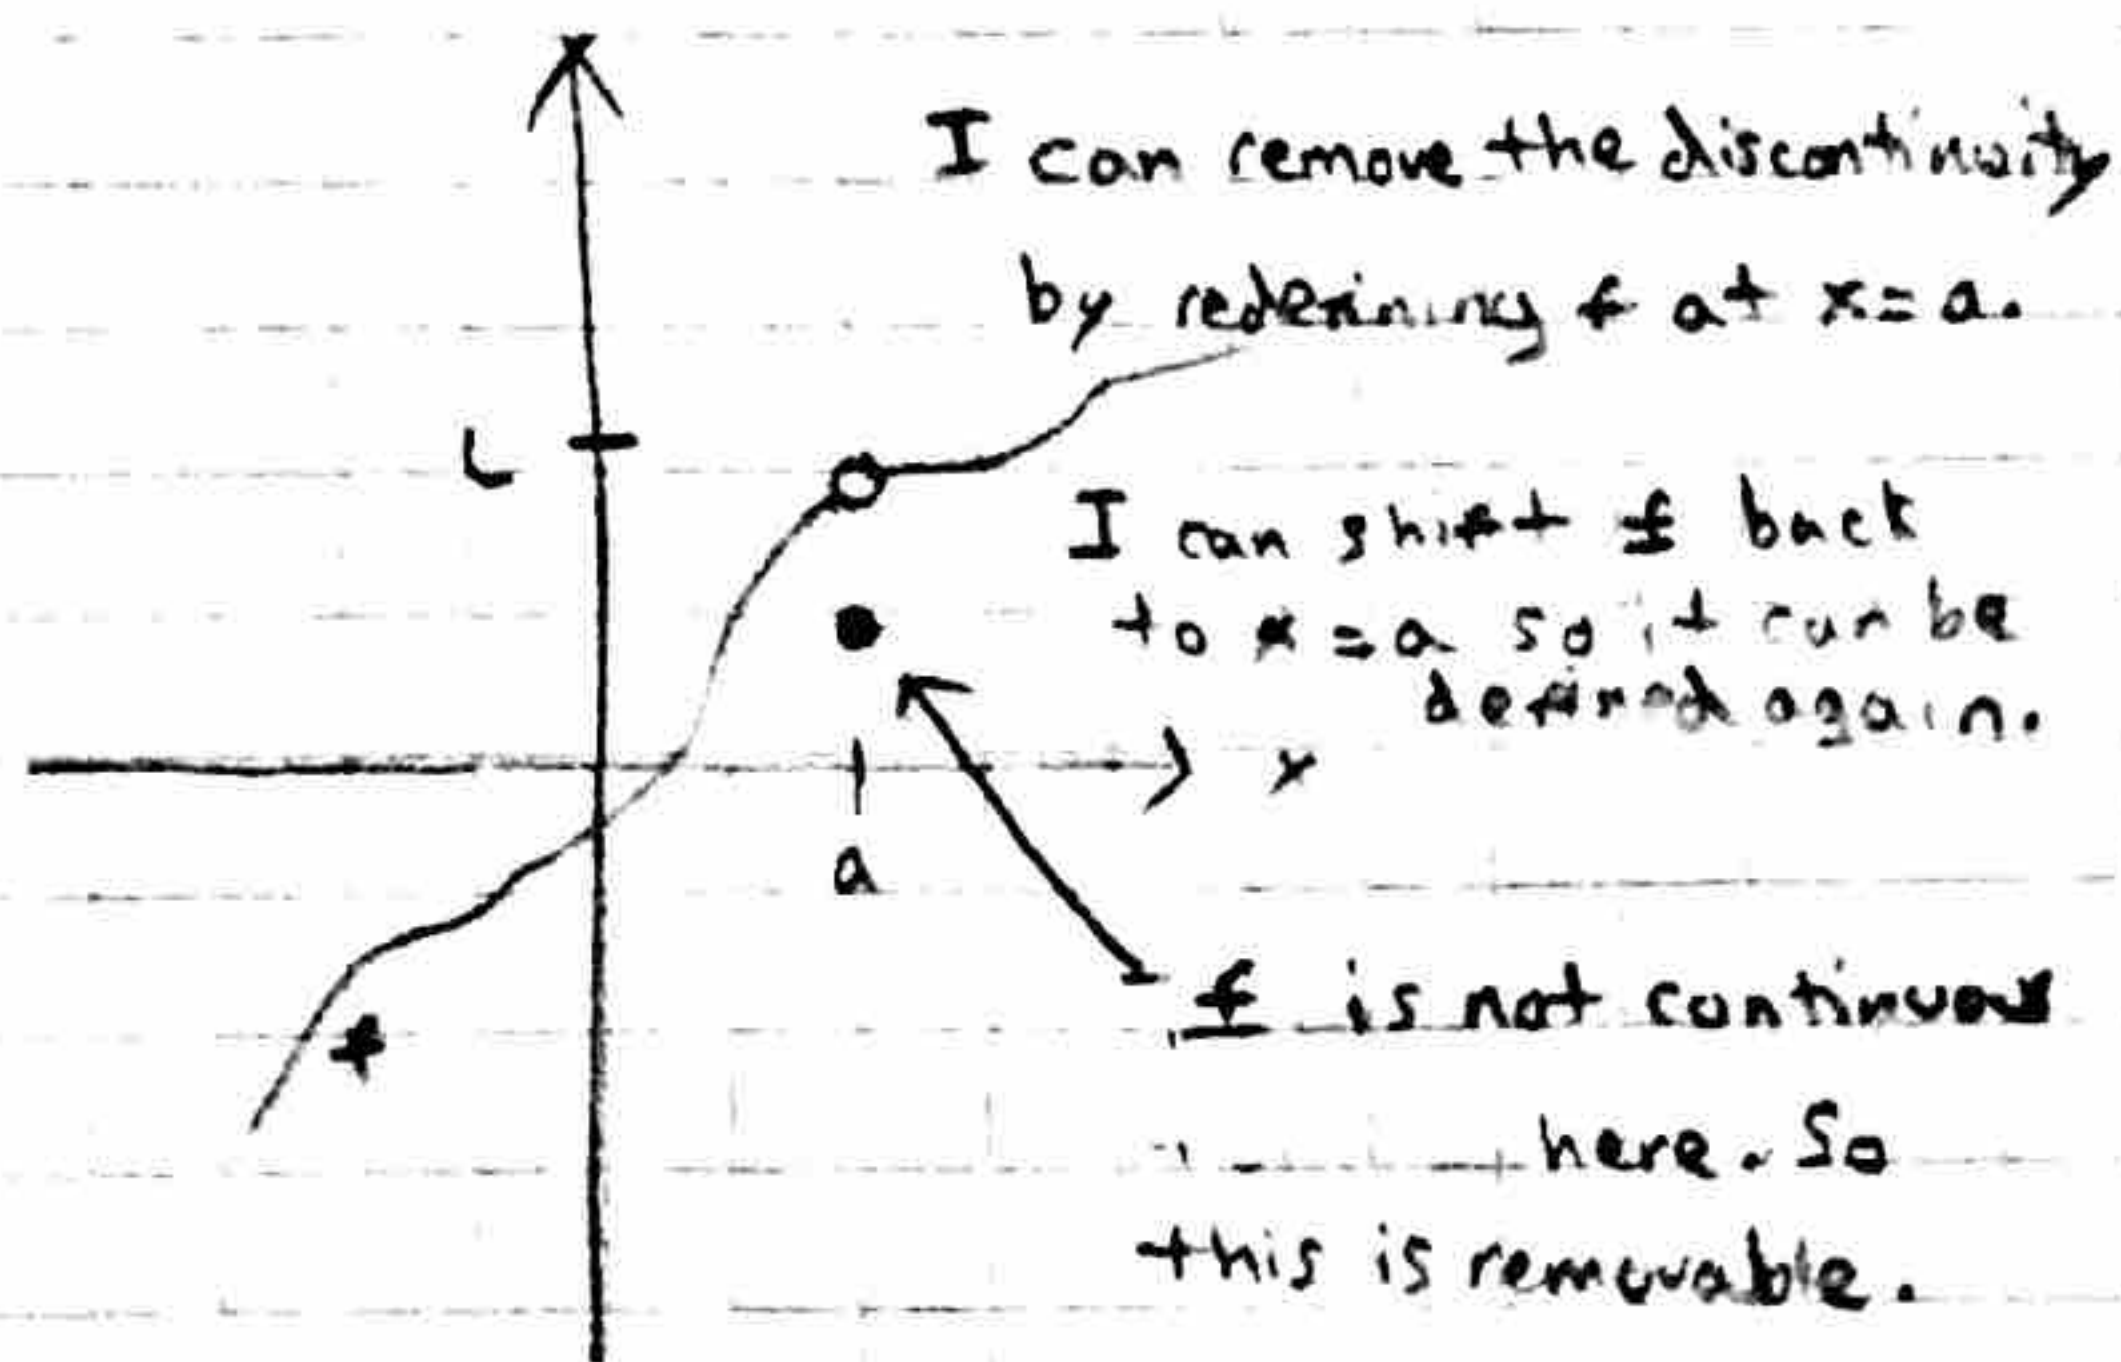 I can remove the discontinuity
by redefining f at x=a.
L
I can shift f back
to x=a so it can be
defined again.
x
a
f is not continuous
f
here. So
this is removable.